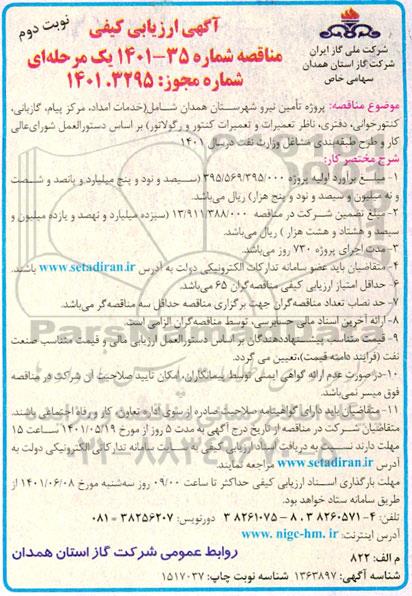 نوبت دوم
آگهی ارزیابی کیفی
مناقصه شماره ۳۵-۱۴۰۱ یک مرحله‌ای
شماره مجوز: ۱۴۰۱.۳۲۹۵
شرکت ملی گاز ایران
شرکت گاز استان همدان
سهامی خاص
موضوع مناقصه: پروژه تأمین نیرو شهرستان همدان شامل(خدمات امداد، مرکز پیام، گازبانی، کنتورخوانی، دفتری، ناظر تعمیرات و تعمیرات کنتور و رگولاتور) بر اساس دستورالعمل شورای‌عالی
کار و طرح طبقه‌بندی مشاغل وزارت نفت درسال ۱۴۰۱
شرح مختصر کار:
۱- مبلغ برآورد اولیه پروژه ۳۹۵/۵۶۹/۳۹۵/۰۰۰ (سیصد و نود و پنج میلیارد و پانصد و شصت
و نه میلیون و سیصد و نود و پنج هزار) ریال می‌باشد.
۲- مبلغ تضمین شرکت در مناقصه ۱۳/۹۱۱/۳۸۸/۰۰۰ (سیزده میلیارد و نهصد و یازده میلیون و
سیصد و هشتاد و هشت هزار) ریال می‌باشد.
۳- مدت اجرای پروژه ۷۳۰ روز می‌باشد.
۴- متقاضیان باید عضو سامانه تدارکات الکترونیکی دولت به آدرس www.setadiran.ir باشند.
۶- حداقل امتیاز ارزیابی کیفی مناقصه‌گران ۶۵ می‌باشد.
۷- حد نصاب تعداد مناقصه‌گران جهت برگزاری مناقصه حداقل سه مناقصه‌گر می‌باشد.
۸- ارائه آخرین اسناد مالی حسابرسی، توسط مناقصه‌گران الزامی است.
۹- قیمت متناسب پیشنهاددهندگان بر اساس دستورالعمل ارزیابی مالی و قیمت متناسب صنعت
نفت (فرآیند دامنه قیمت)،تعیین می گردد.
۱۰-در صورت عدم ارائه گواهی ایمنی توسط پیمانکاران، امکان تایید صلاحیت آن شرکت در مناقصه
فوق میسر نمی‌باشد.
۱۱- متقاضیان باید دارای گواهینامه صلاحیت صادره از سوی اداره تعاون، کار و رفاه اجتماعی باشند.
متقاضیان شرکت در مناقصه از تاریخ درج آگهی به مدت ۵ روز از مورخ ۱۴۰۱/۰۵/۱۹ تا ساعت ۱۵
مهلت دارند نسبت به دریافت اسناد ارزیابی کیفی به سایت سامانه تدارکاتی الکترونیکی دولت به
آدرس www.setadiran.ir مراجعه نمایند.
مهلت بارگذاری اسناد ارزیابی کیفی حداکثر تا ساعت ۰۹/۰۰ روز سه‌شنبه مورخ ۱۴۰۱/۰۶/۰۸ از
طریق سامانه ستاد خواهد بود.
تلفن: ۴-۳۸۲۶۰۵۷۱ و ۸-۳۸۲۶۱۰۷۵ دورنویس: ۳۸۲۵۶۲۰۷-۰۸۱
آدرس اینترنت: www.nigc-hm.ir
روابط عمومی شرکت گاز استان همدان
م الف: ۸۲۲
شناسه آگهی: ۱۳۶۳۸۹۷ شناسه نوبت چاپ: ۱۵۱۷۰۳۷
۰۲۱-۸۸۳۴۹۶۷۰-۵